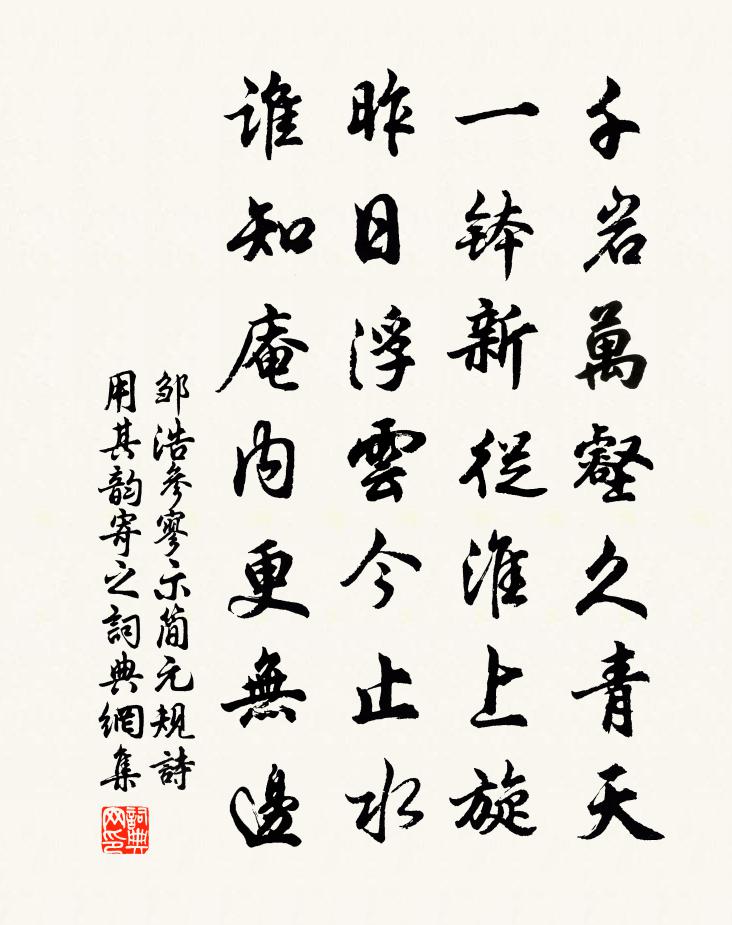 千岩萬壑久青天
一鉢新從淮上旋
昨日浮雲今止水
誰知庵内更無邊
邹浩參寥示简元規詩
用其韵寄之詞典網集
詞典网印